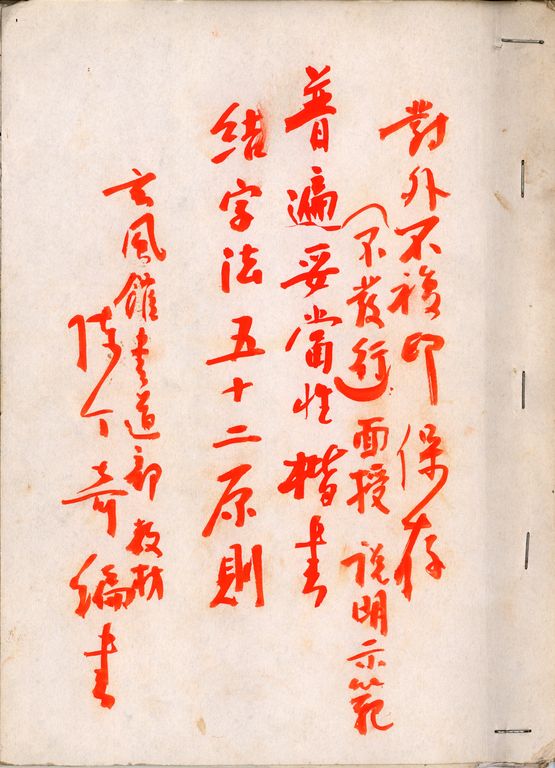 對外不複印 保存
(不發行) 面授 說明示範
普遍妥當性楷書
結字法五十二原則
玄風館書道部教材
陳丁奇編書